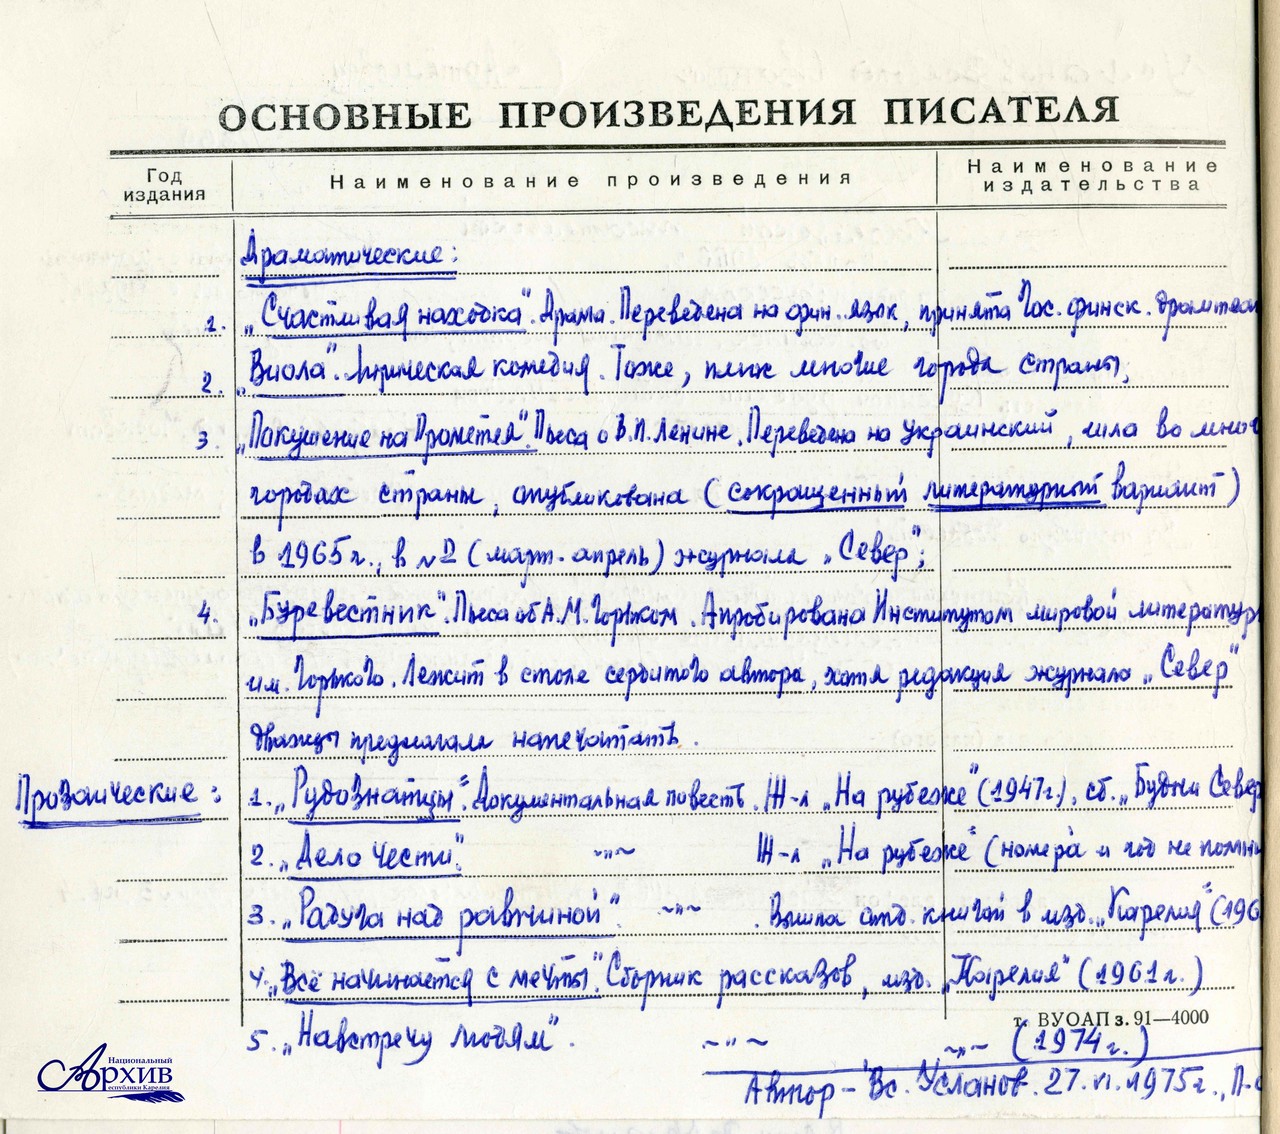 ОСНОВНЫЕ ПРОИЗВЕДЕНИЯ ПИСАТЕЛЯ
Год издания
Наименование произведения
Наименование издательства
Драматические:
1. „Счастливая находка". Драма. Переведена на фин. язык, принята Гос. финск. драмтеат
2. „Виола". Лирическая комедия. Тоже, плюс многие города страны,
3. „Покушение на Прометея". Пьеса о В.И. Ленине. Переведена на украинский, шла во мног
городах страны, опубликована (сокращенный литературный вариант)
в 1965 г., в № (март-апрель) журнала „Север";
4. „Буревестник". Пьеса об А.М. Горьком. Апробирована Институтом мировой литератур
им. Горького. Лежит в столе сердитого автора, хотя редакция журнала „Север"
дважды предлагала напечатать.
Прозаические:
1. „Рудознатцы". Документальная повесть. Ж-л „На рубеже" (1947 г.), сб. „Будни Север
2. „Дело чести". –"– Ж-л „На рубеже" (номера и год не помн
3. „Радуга над равниной". –"– . Вышла отд. книгой в изд. „Карелия" (196
4. „Всё начинается с мечты". Сборник рассказов, изд. „Карелия" (1961 г.)
т. ВУОАП з. 91—4000
5. „Навстречу людям". –"– –"– (1974 г.)
Автор – Вс. Усланов. 27.VI.1975 г., П-
Национальный
Архив
республики Карелия